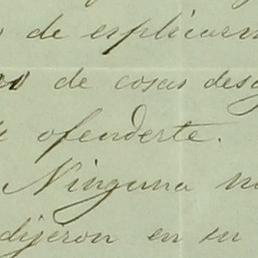 de esplicar
de cosas des
ofenderte.
Ninguna
dijeron en su